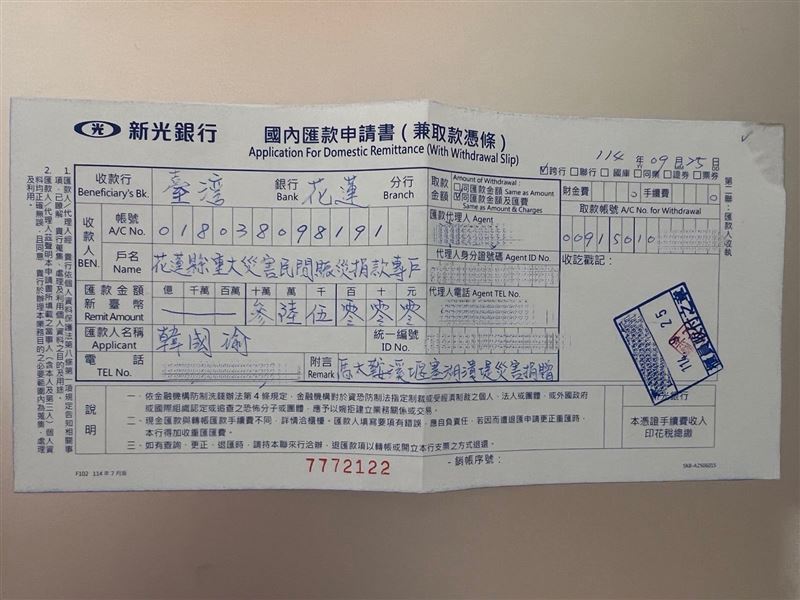 新光銀行
國內匯款申請書（兼取款憑條）
Application For Domestic Remittance (With Withdrawal Slip)
114 年 09 月 25 日
☑跨行 □聯行 □國庫 □同業 □證券 □票券
收款行 Beneficiary's Bk. 臺灣 銀行 Bank 花蓮 分行 Branch
取款金額 Amount of Withdrawal
□同匯款金額 Same as Amount
☑同匯款金額及匯費 Same as Amount & Charges
財金費 0 手續費 0
收款人 BEN.
帳號 A/C No. 018038098191
匯款代理人 Agent
取款帳號 A/C No. for Withdrawal
00915010
戶名 Name 花蓮縣重大災害民間賑災捐款專戶
代理人身分證號碼 Agent ID No.
收訖戳記：
匯款金額 新臺幣 Remit Amount
億 千萬 百萬 十萬 萬 千 百 十 元
參 陸 伍 零 零 零
代理人電話 Agent TEL No.
匯款人名稱 Applicant 韓國瑜
統一編號 ID No.
電話 TEL No.
附言 Remark 馬太鞍溪堰塞湖潰堤災害捐贈
說明
一、依金融機構防制洗錢辦法第4條規定，金融機構對於資恐防制法指定制裁或受經濟制裁之個人、法人或團體，或外國政府
或國際組織認定或追查之恐怖分子或團體，應予以婉拒建立業務關係或交易。
二、現金匯款與轉帳匯款手續費不同，詳情洽櫃檯。匯款人填寫要項有錯誤，應自負責任，若因而遭退匯申請更正重匯時，
本行得加收重匯匯費。
三、如有查詢、更正、退匯時，請持本聯來行洽辦，退匯款項以轉帳或開立本行支票之方式退還。
本憑證手續費收入
印花稅總繳
7772122
- 銷帳序號：
F102 114年7月版
第二聯：匯款人收執